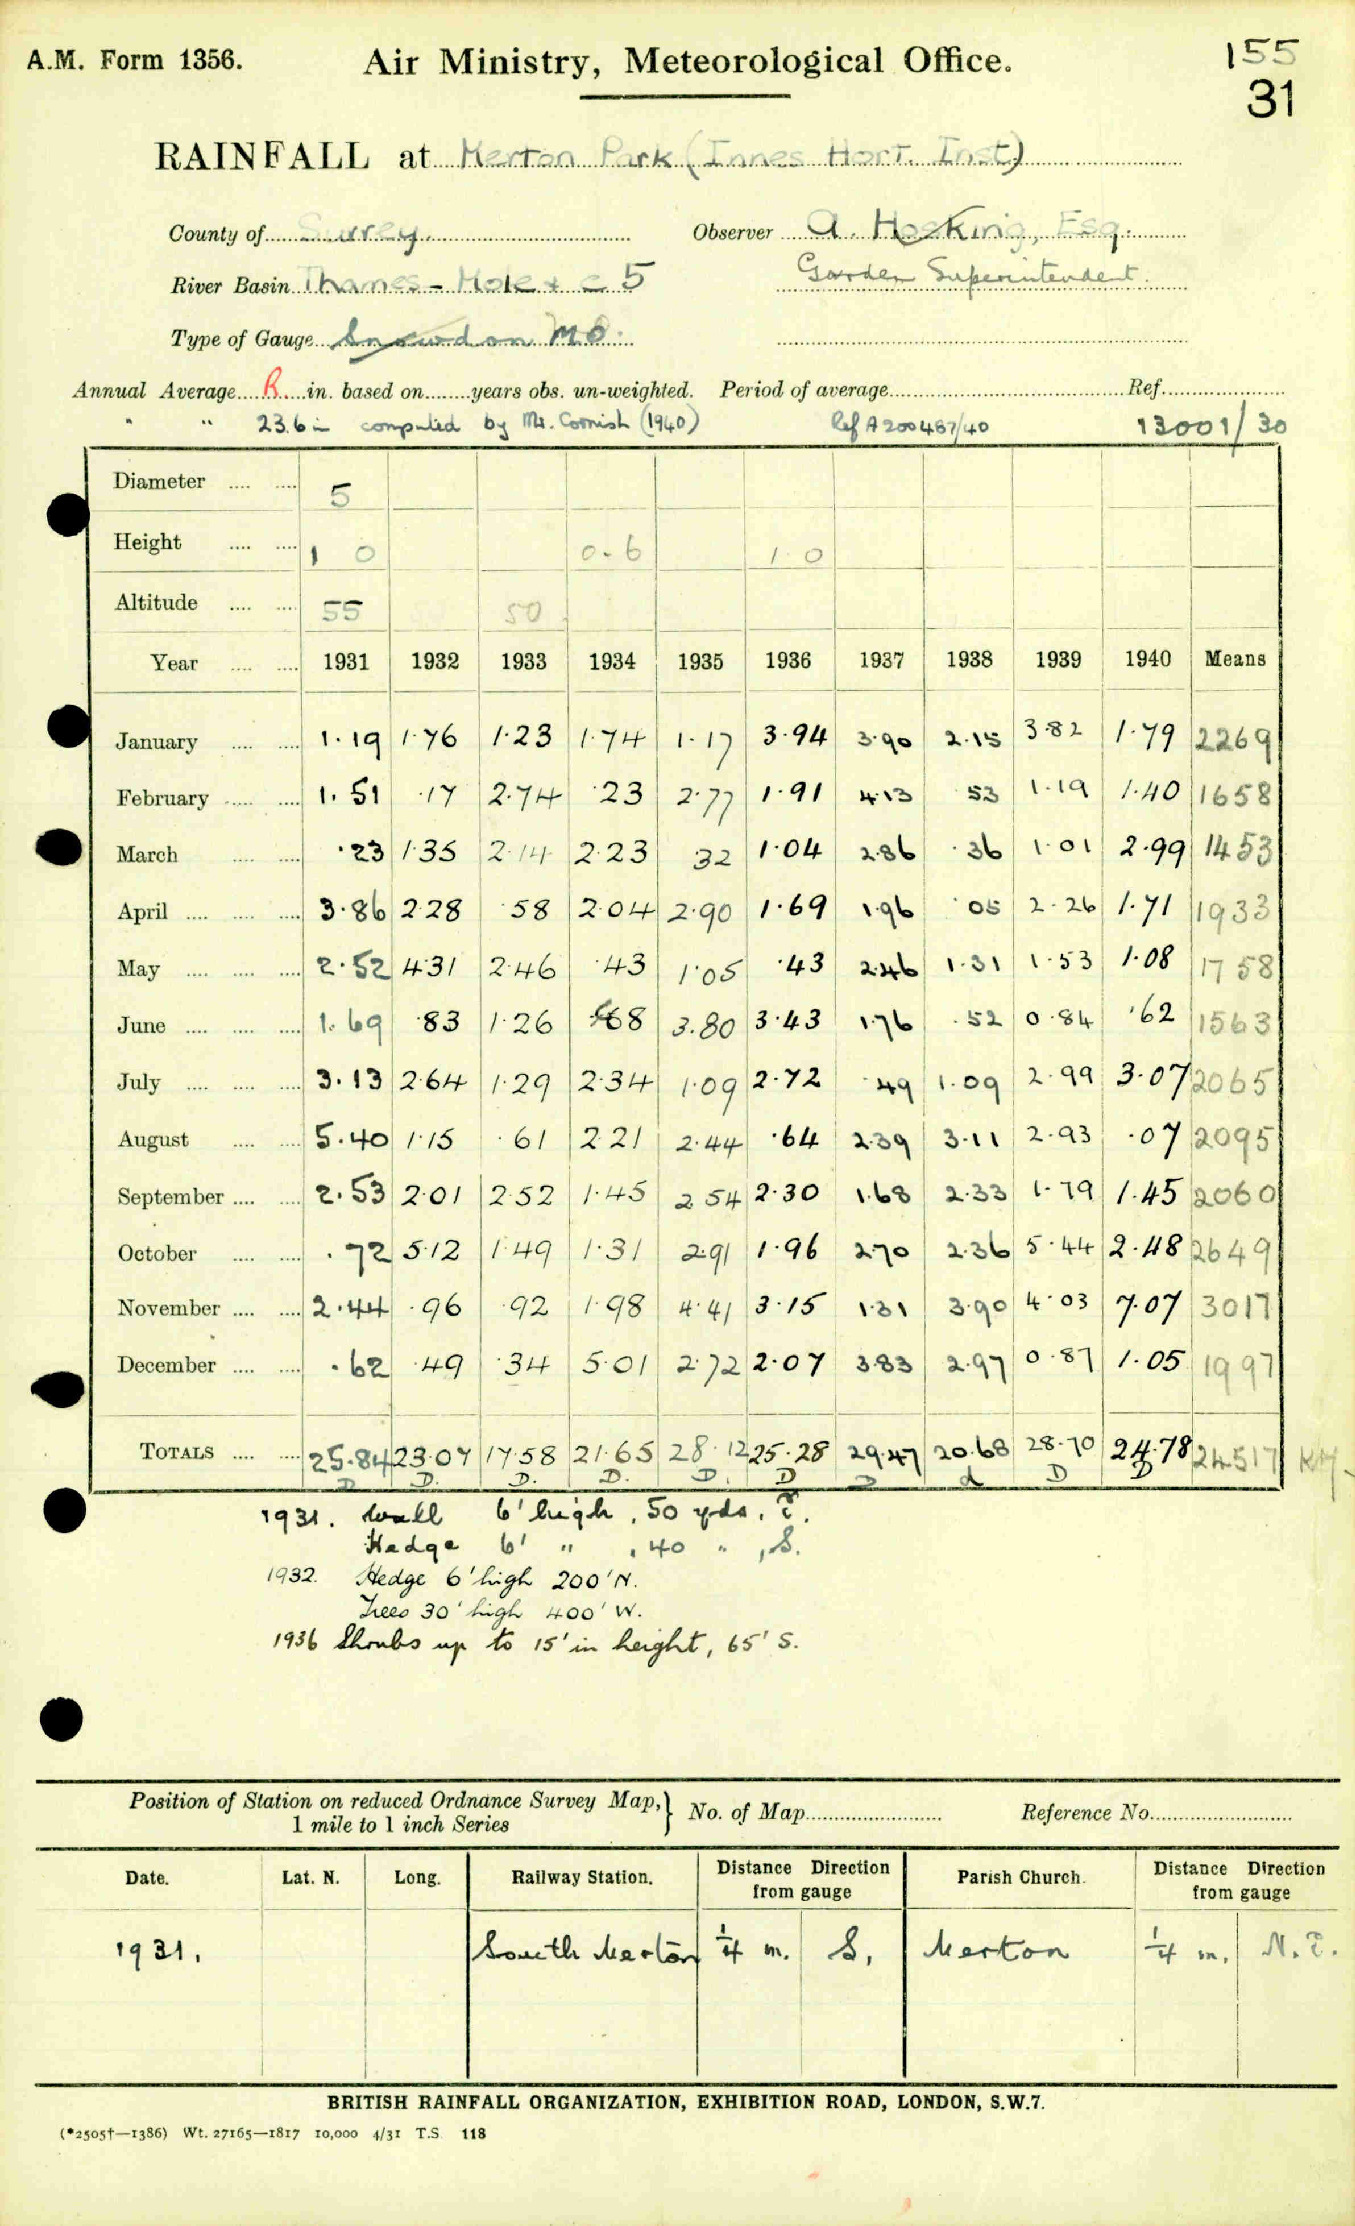 A.M. Form 1356.
Air Ministry, Meteorological Office.
155
31
RAINFALL at Merton Park (Innes Hort. Inst)
County of Surrey. Observer A. Hosking, Esq.
River Basin Thames - Mole & c 5 Garden Superintendent.
Type of Gauge Snowdon MO.
Annual Average R in. based on years obs. un-weighted. Period of average Ref.
" " 23.6 in computed by Mr. Cornish (1940) Ref A200487/40 13001/30
Diameter 5
Height 1 0 0-6 1 0
Altitude 55 50
Year 1931 1932 1933 1934 1935 1936 1937 1938 1939 1940 Means
January 1.19 1.76 1.23 1.74 1.17 3.94 3.90 2.15 3.82 1.79 2269
February 1.51 .17 2.74 .23 2.77 1.91 4.13 53 1.19 1.40 1658
March .23 1.35 2.14 2.23 32 1.04 2.86 .36 1.01 2.99 1453
April 3.86 2.28 .58 2.04 2.90 1.69 1.96 .05 2.26 1.71 1933
May 2.52 4.31 2.46 .43 1.05 .43 2.46 1.31 1.53 1.08 1758
June 1.69 .83 1.26 .68 3.80 3.43 1.76 .52 0.84 .62 1563
July 3.13 2.64 1.29 2.34 1.09 2.72 .49 1.09 2.99 3.07 2065
August 5.40 1.15 .61 2.21 2.44 .64 2.39 3.11 2.93 .07 2095
September 2.53 2.01 2.52 1.45 2.54 2.30 1.68 2.33 1.79 1.45 2060
October .72 5.12 1.49 1.31 2.91 1.96 2.70 2.36 5.44 2.48 2649
November 2.44 .96 .92 1.98 4.41 3.15 1.31 3.90 4.03 7.07 3017
December .62 .49 .34 5.01 2.72 2.07 3.83 2.97 0.87 1.05 1997
TOTALS 25.84 23.07 17.58 21.65 28.12 25.28 29.47 20.68 28.70 24.78 24517
D D. D. D. D. D D d D D
1931. Wall 6' high, 50 yds. E.
Hedge 6' " , 40 " , S.
1932. Hedge 6' high 200' N.
Trees 30' high 400' W.
1936 Shrubs up to 15' in height, 65' S.
Position of Station on reduced Ordnance Survey Map,} No. of Map Reference No.
1 mile to 1 inch Series
Date. Lat. N. Long. Railway Station. Distance Direction from gauge Parish Church. Distance Direction from gauge
1931. South Merton ¼ m. S. Merton ¼ m. N.E.
BRITISH RAINFALL ORGANIZATION, EXHIBITION ROAD, LONDON, S.W.7.
(*2505†—1386) Wt. 27165—1817 10,000 4/31 T.S. 118